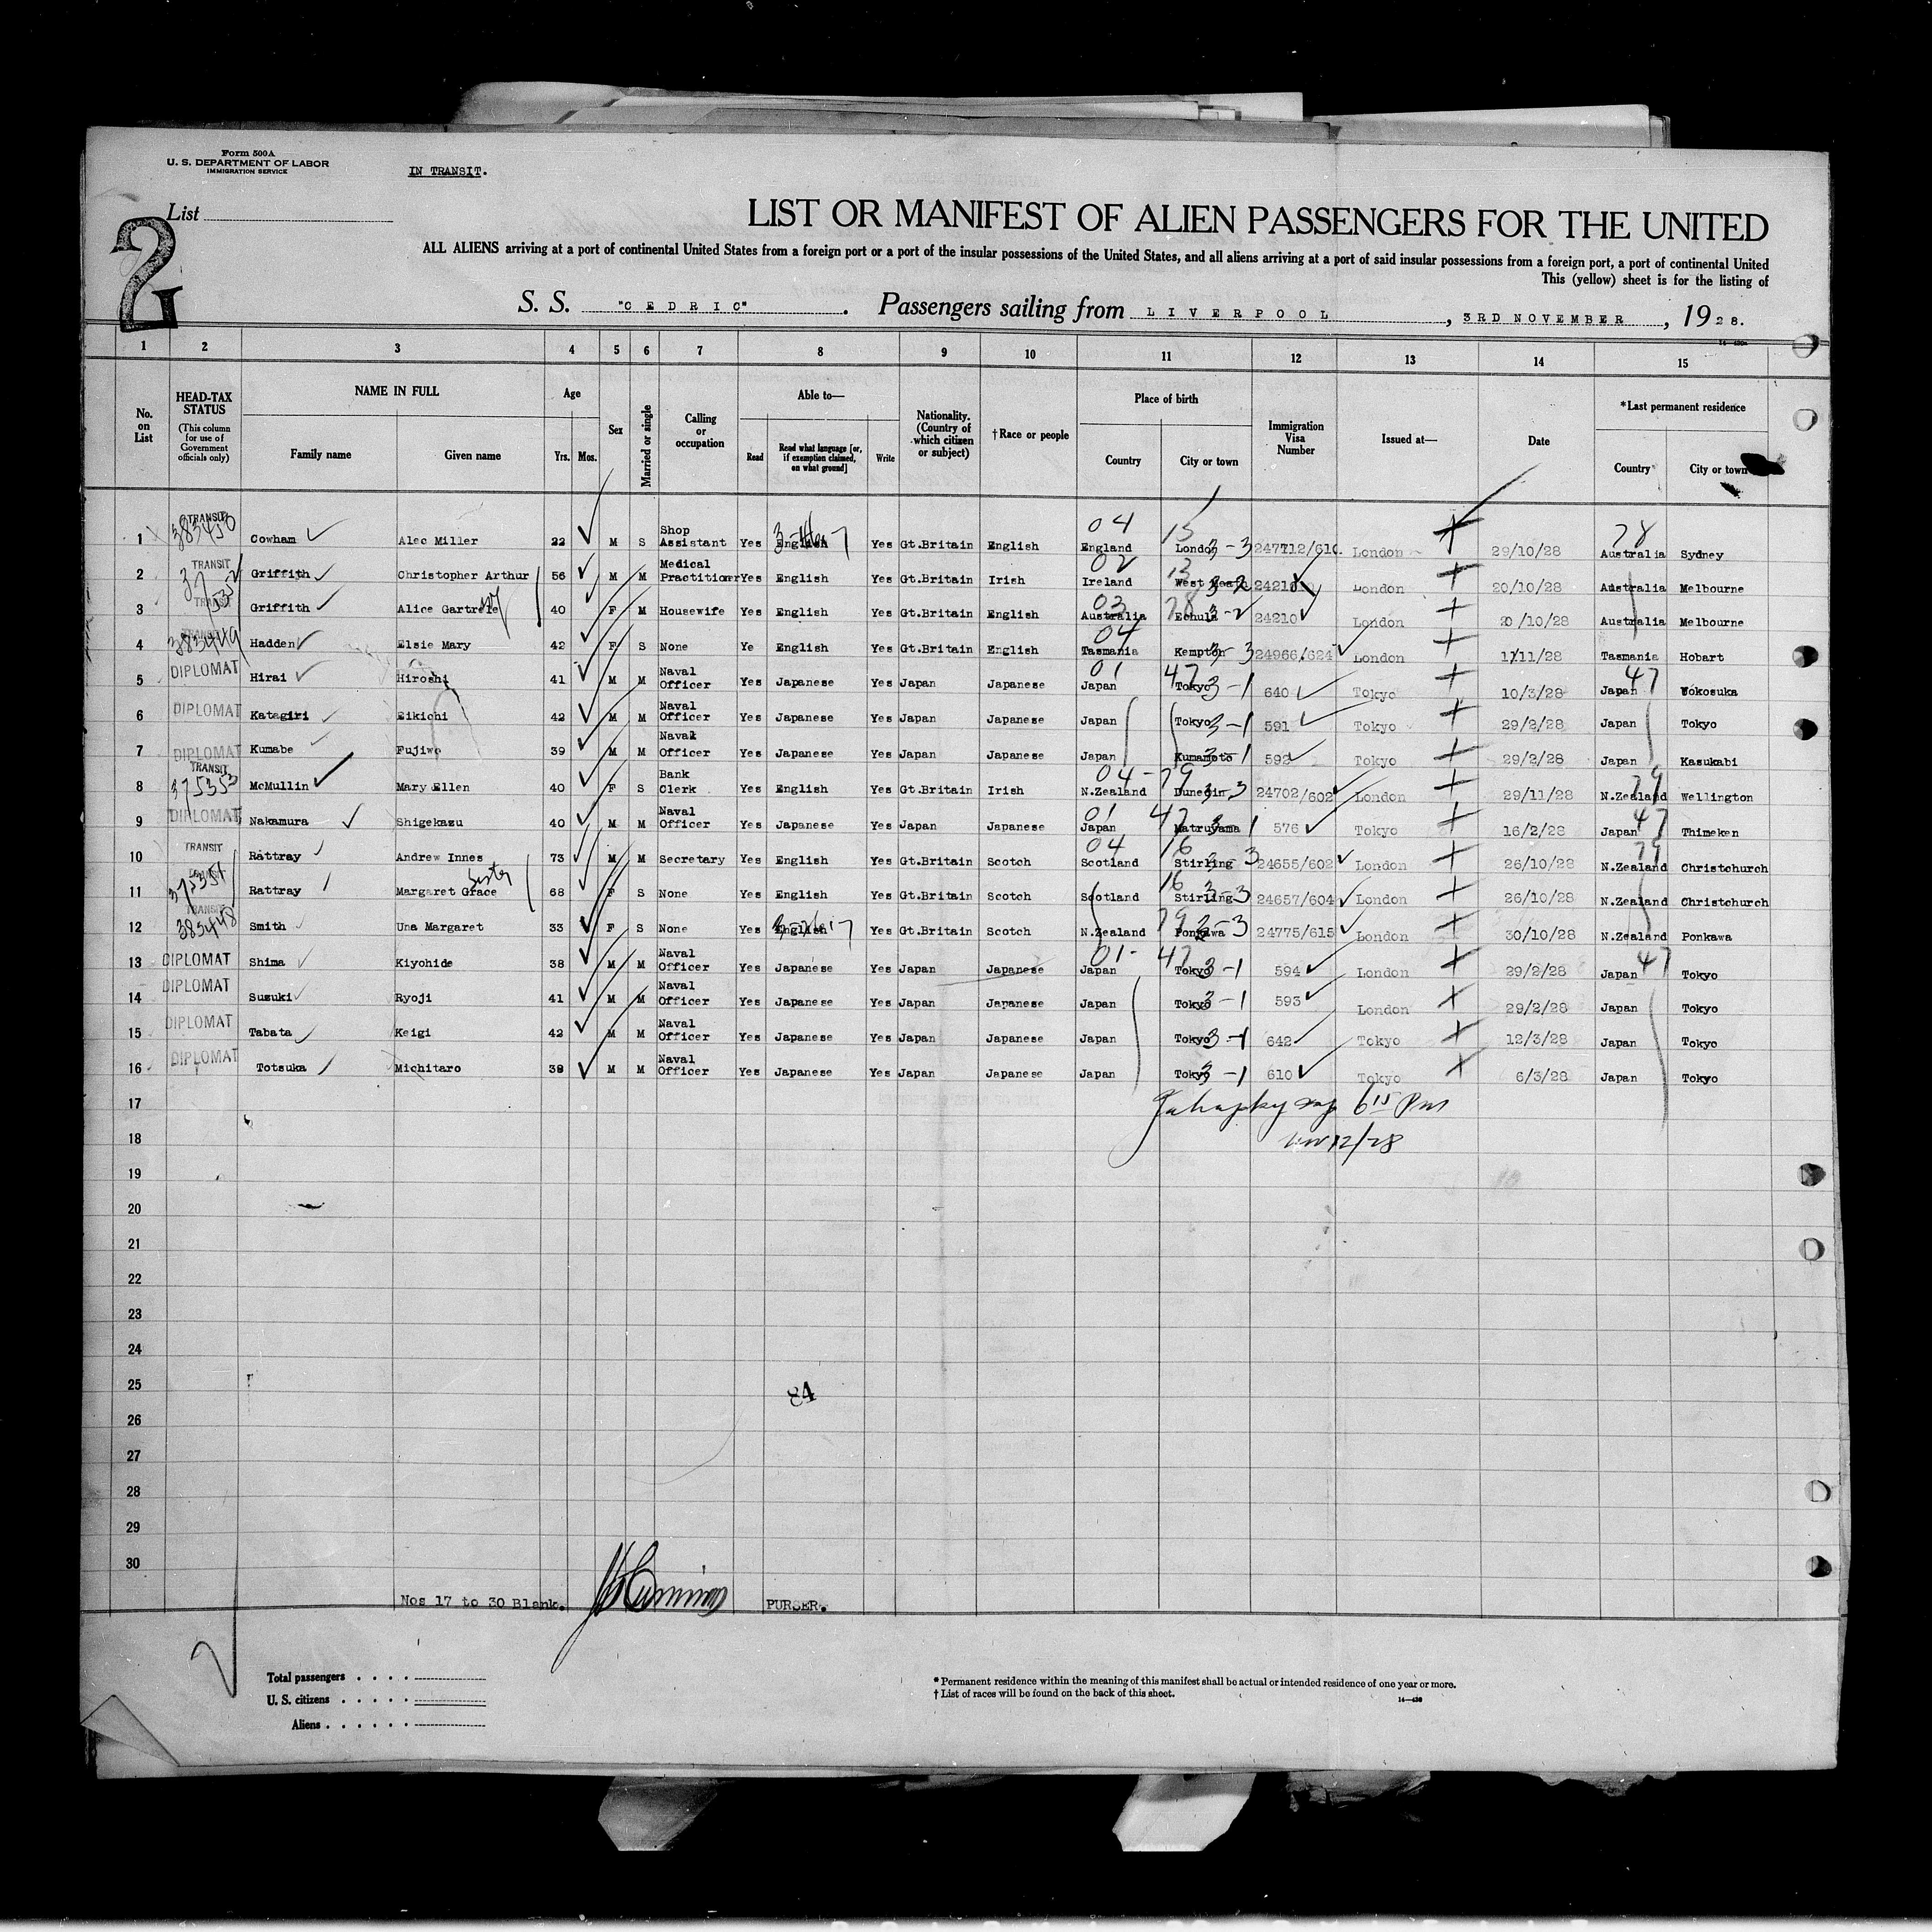 Form 500A
U. S. DEPARTMENT OF LABOR
IMMIGRATION SERVICE
IN TRANSIT.
List
2
LIST OR MANIFEST OF ALIEN PASSENGERS FOR THE UNITED
ALL ALIENS arriving at a port of continental United States from a foreign port or a port of the insular possessions of the United States, and all aliens arriving at a port of said insular possessions from a foreign port, a port of continental United
This (yellow) sheet is for the listing of
S. S. "CEDRIC". Passengers sailing from LIVERPOOL, 3RD NOVEMBER, 1928.
1 2 3 4 5 6 7 8 9 10 11 12 13 14 15
No. on List
HEAD-TAX STATUS (This column for use of Government officials only)
NAME IN FULL
Family name Given name
Age
Yrs. Mos.
Sex
Married or single
Calling or occupation
Able to—
Read Read what language [or, if exemption claimed, on what ground] Write
Nationality. (Country of which citizen or subject)
†Race or people
Place of birth
Country City or town
Immigration Visa Number
Issued at—
Date
*Last permanent residence
Country City or town
1 TRANSIT 383450 Cowham Alec Miller 22 M S Shop Assistant Yes English Yes Gt.Britain English 04 England 15 London 3-3 /610. London 29/10/28 78 Australia Sydney
2 TRANSIT Griffith Christopher Arthur 56 M M Medical Practitioner Yes English Yes Gt.Britain Irish 02 Ireland 13 West Meath 3-2 London 20/10/28 Australia Melbourne
3 Griffith Alice 40 F M Housewife Yes English Yes Gt.Britain English 03 Australia 78 Echula 3-2 24210 London 20/10/28 Australia Melbourne
4 383449 Hadden Elsie Mary 42 F S None Ye English Yes Gt.Britain English 04 Tasmania Kempton 3-3 24966/624 London 1/11/28 Tasmania Hobart
5 DIPLOMAT Hirai Hiroshi 41 M M Naval Officer Yes Japanese Yes Japan Japanese 01 Japan 47 Tokyo 3-1 640 Tokyo 10/3/28 47 Japan Yokosuka
6 DIPLOMAT Katagiri Eikichi 42 M M Naval Officer Yes Japanese Yes Japan Japanese Japan Tokyo 3-1 591 Tokyo 29/2/28 Japan Tokyo
7 DIPLOMAT Kumabe Fujiwo 39 M M Naval Officer Yes Japanese Yes Japan Japanese Japan Kumamoto 3-1 592 Tokyo 29/2/28 Japan Kasukabi
8 TRANSIT 375353 McMullin Mary Ellen 40 F S Bank Clerk Yes English Yes Gt.Britain Irish 04-79 N.Zealand Dunedin 3 24702/602 London 29/11/28 79 N.Zealand Wellington
9 DIPLOMAT Nakamura Shigekazu 40 M M Naval Officer Yes Japanese Yes Japan Japanese 01 Japan 47 Matruyama 3-1 576 Tokyo 16/2/28 47 Japan Thimeken
10 TRANSIT Rattray Andrew Innes 73 M M Secretary Yes English Yes Gt.Britain Scotch 04 Scotland 16 Stirling 3-3 24655/602 London 26/10/28 79 N.Zealand Christchurch
11 375351 Rattray Margaret Grace Sister 68 F S None Yes English Yes Gt.Britain Scotch Scotland 16 Stirling 3-3 24657/604 London 26/10/28 N.Zealand Christchurch
12 TRANSIT 383448 Smith Una Margaret 33 F S None Yes English Yes Gt.Britain Scotch N.Zealand 79 3-3 24775/615 London 30/10/28 N.Zealand Ponkawa
13 DIPLOMAT Shima Kiyohide 38 M M Naval Officer Yes Japanese Yes Japan Japanese 01- Japan 47 Tokyo 3-1 594 London 29/2/28 Japan 47 Tokyo
14 DIPLOMAT Suzuki Ryoji 41 M M Naval Officer Yes Japanese Yes Japan Japanese Japan Tokyo 3-1 593 London 29/2/28 Japan Tokyo
15 DIPLOMAT Tabata Keigi 42 M M Naval Officer Yes Japanese Yes Japan Japanese Japan Tokyo 3-1 642 Tokyo 12/3/28 Japan Tokyo
16 DIPLOMAT Totsuka Michitaro 38 M M Naval Officer Yes Japanese Yes Japan Japanese Japan Tokyo 3-1 610 Tokyo 6/3/28 Japan Tokyo
17 6 15 Pm
18 12/28
19
20
21
22
23
24
25 84
26
27
28
29
30
Nos 17 to 30 Blank. PURSER.
Total passengers . . . .
U. S. citizens . . . . .
Aliens . . . . . .
* Permanent residence within the meaning of this manifest shall be actual or intended residence of one year or more.
† List of races will be found on the back of this sheet.
14—430